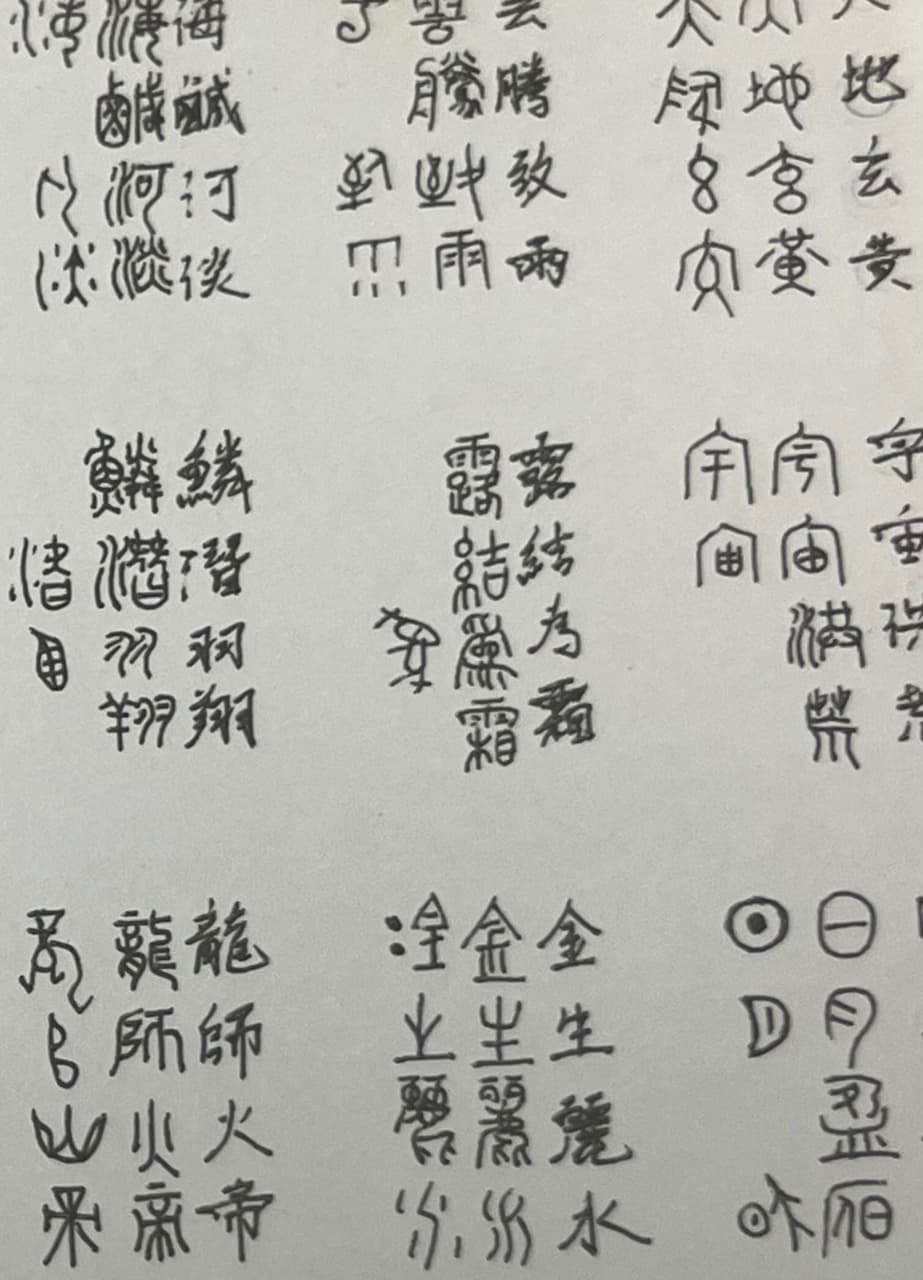 地玄黃宇宙洪荒
天地玄黃宇宙洪荒日月盈昃
天地玄黃宇宙日月昃
雲騰致雨露結為霜金生麗水
雲騰致雨露結為霜金生麗水
雲致雨為金生麗水
海鹹河淡鱗潛羽翔龍師火帝
海鹹河淡鱗潛羽翔龍師火帝
海河淡潛羽龍師火帝